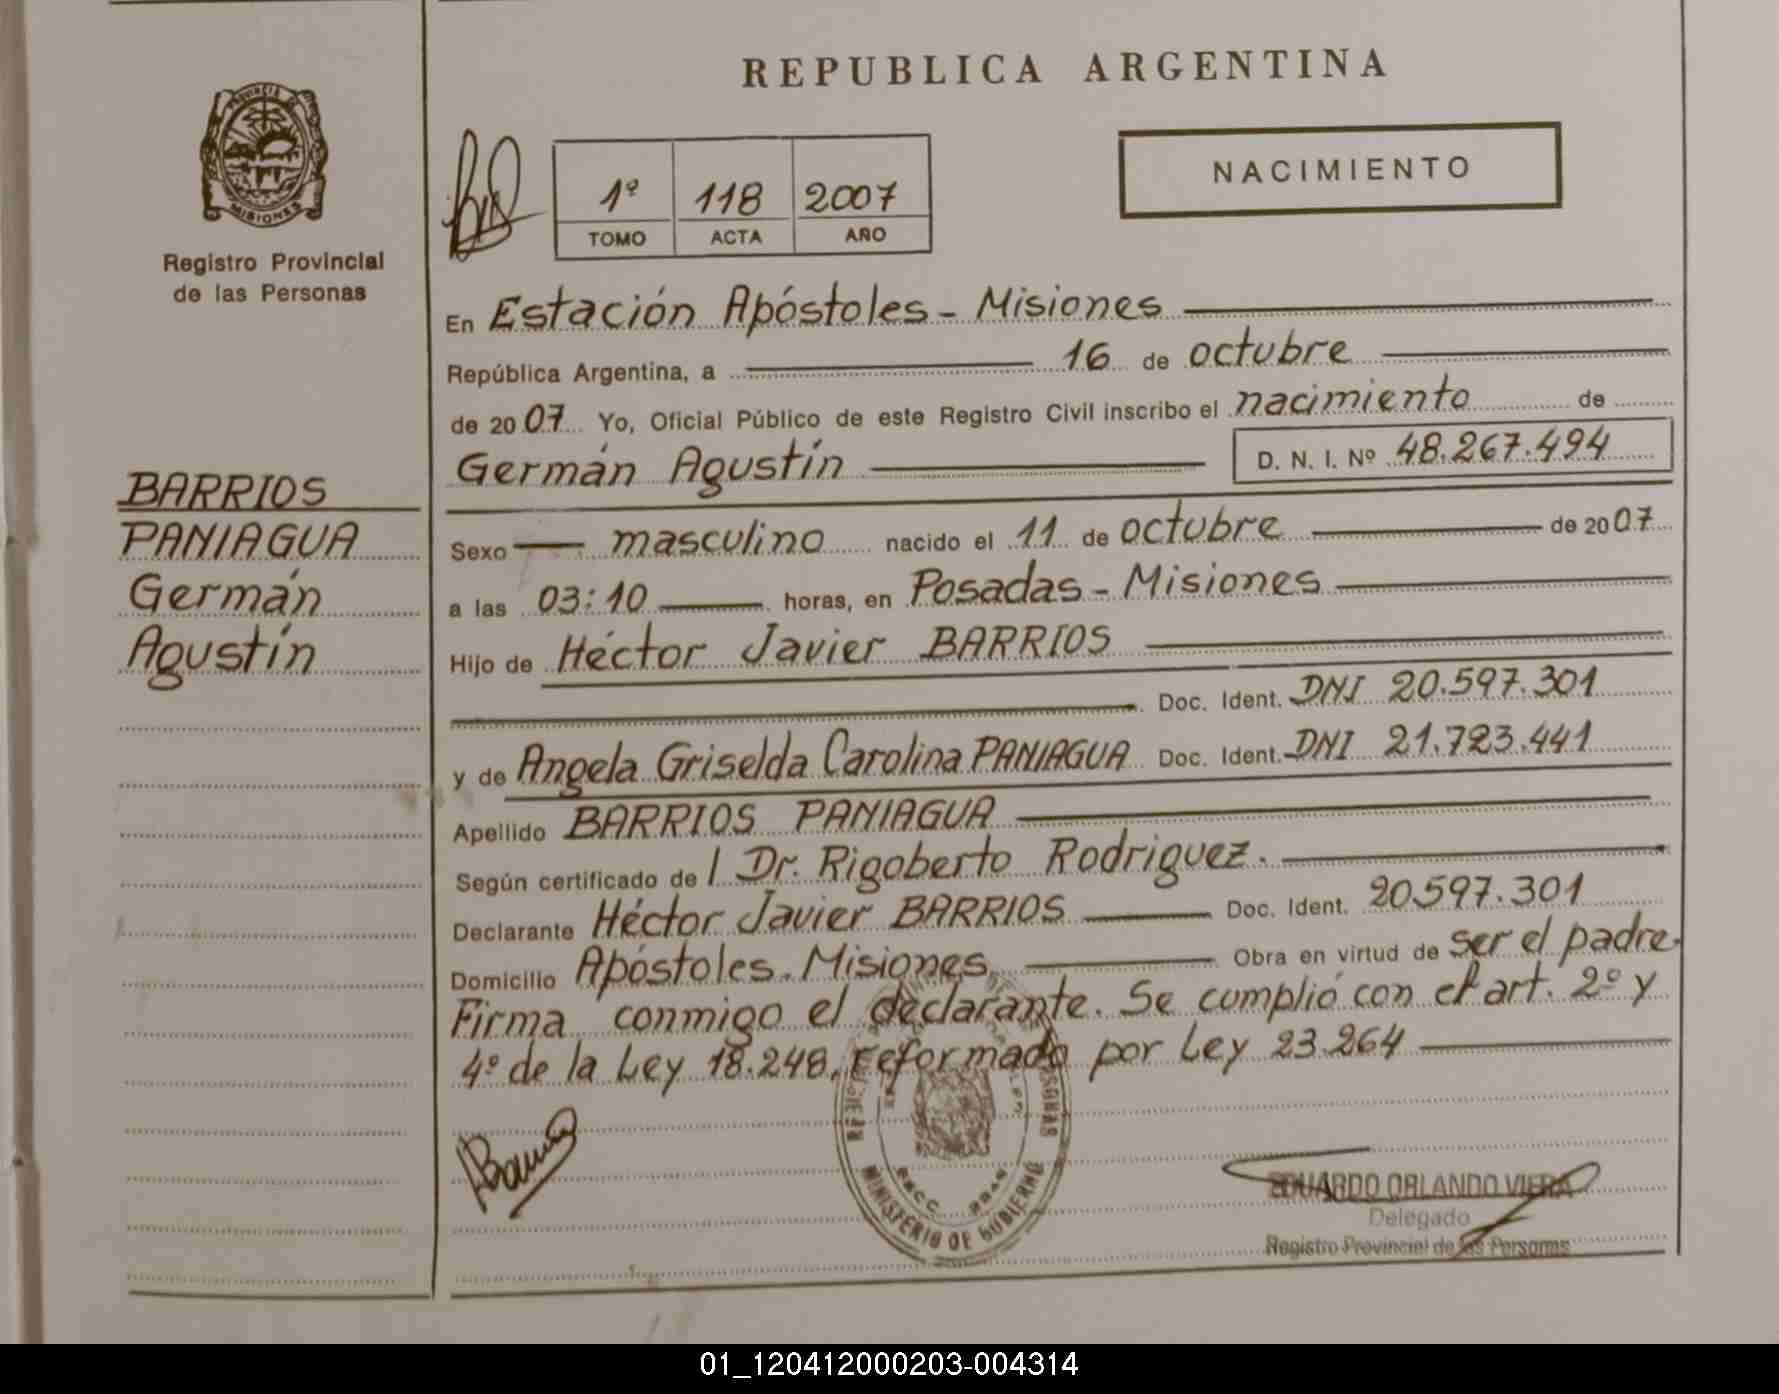 REPUBLICA ARGENTINA
PROVINCIA DE
MISIONES
Registro Provincial
de las Personas
1º 118 2007
TOMO ACTA AÑO
NACIMIENTO
En Estación Apóstoles - Misiones
República Argentina, a 16 de octubre
de 2007 Yo, Oficial Público de este Registro Civil inscribo el nacimiento de
Germán Agustín D. N. I. Nº 48.267.494
BARRIOS
PANIAGUA
Germán
Agustín
Sexo masculino nacido el 11 de octubre de 2007
a las 03:10 horas, en Posadas - Misiones
Hijo de Héctor Javier BARRIOS
Doc. Ident. DNI 20.597.301
y de Angela Griselda Carolina PANIAGUA Doc. Ident. DNI 21.723.441
Apellido BARRIOS PANIAGUA
Según certificado de l Dr. Rigoberto Rodriguez.
Declarante Héctor Javier BARRIOS Doc. Ident. 20.597.301
Domicilio Apóstoles - Misiones Obra en virtud de ser el padre.
Firma conmigo el declarante. Se cumplió con el art. 2º y
4º de la Ley 18.248, reformado por Ley 23.264
MINISTERIO DE GOBIERNO
EDUARDO ORLANDO VIERA
Delegado
Registro Provincial de las Personas
01_120412000203-004314